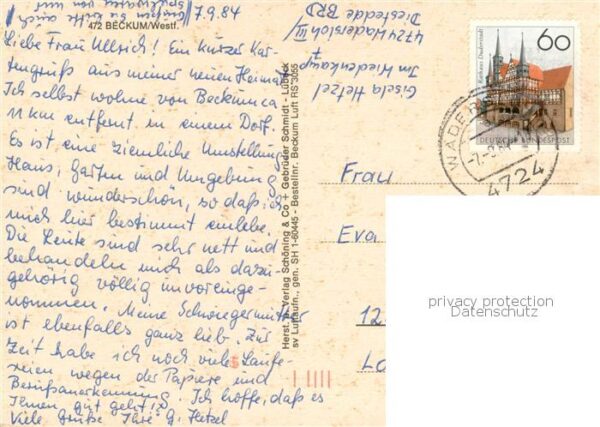 7.9.84
472 BECKUM/Westf.
Liebe Frau Ullrich! Ein kurzer Kar-
tengruß aus meiner neuen Heimat.
Ich selbst wohne von Beckum ca
11 km entfernt in einem Dorf.
Es ist eine ziemliche Umstellung
Haus, Garten und Umgebung
sind wunderschön, so daß ich
mich hier bestimmt einlebe.
Die Leute sind sehr nett und
behandeln mich als dazu-
gehörig völlig unvoreinge-
nommen. Meine Schwiegermutter
ist ebenfalls ganz lieb. Zur
Zeit habe ich noch viele Laufe-
reien wegen der Papiere und
Berufsanerkennung. Ich hoffe, daß es
Ihnen gut geht!
Viele Grüße Ihre G. Hetzel
Herst. u. Verlag Schöning & Co + Gebrüder Schmidt - Lübeck
sv Luftaufn., gen. SH 1-60445 - Bestellnr. Beckum Luft RS 3055
Gisela Hetzel
Im Wiedenkamp
4724 Wadersloh III
Diestedde BRD
60
Rathaus Duderstadt
DEUTSCHE BUNDESPOST
WADER
4724
Frau
Eva
12
privacy protection
Datenschutz